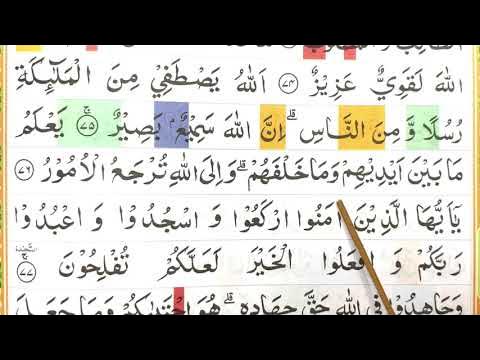 الطَّالِبُ وَالْمَطْلُوْبُ
اللّٰهَ لَقَوِيٌّ عَزِيْزٌ ﴿۷۴﴾ اَللّٰهُ يَصْطَفِيْ مِنَ الْمَلٰٓئِكَةِ
رُسُلًا وَّ مِنَ النَّاسِ ؕ اِنَّ اللّٰهَ سَمِيْعٌۢ بَصِيْرٌ ۚ ﴿۷۵﴾ يَعْلَمُ
مَا بَيْنَ اَيْدِيْهِمْ وَمَا خَلْفَهُمْ ؕ وَاِلَى اللّٰهِ تُرْجَعُ الْاُمُوْرُ ﴿۷۶﴾
يٰۤاَيُّهَا الَّذِيْنَ اٰمَنُوا ارْكَعُوْا وَ اسْجُدُوْا وَ اعْبُدُوْا
رَبَّكُمْ وَ افْعَلُوا الْخَيْرَ لَعَلَّكُمْ تُفْلِحُوْنَ ۩ ﴿۷۷﴾ السَّجْدَة
وَجَاهِدُوْا فِي اللّٰهِ حَقَّ جِهَادِهٖ ؕ هُوَ اجْتَبٰىكُمْ وَمَا جَعَلَ